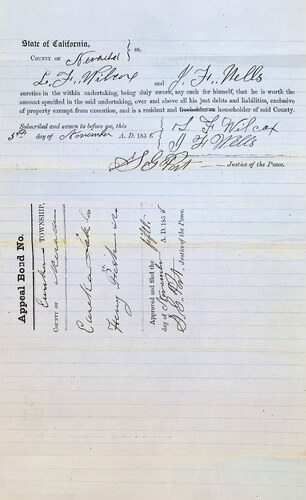 State of California, } ss.
COUNTY OF Nevada
L. F. Wilcox and J. F. Wells
sureties in the within undertaking, being duly sworn, say each for himself, that he is worth the
amount specified in the said undertaking, over and above all his just debts and liabilities, exclusive
of property exempt from execution, and is a resident and freeholder or householder of said County.
Subscribed and sworn to before me, this } L F Wilcox
5th day of November A. D. 185 J F Wells
Justice of the Peace.
Appeal Bond No.
Eureka TOWNSHIP,
COUNTY OF Nevada
Eureka Lake Co
Henry
Approved and filed the fifth
day of November A. D. 185
Justice of the Peace.